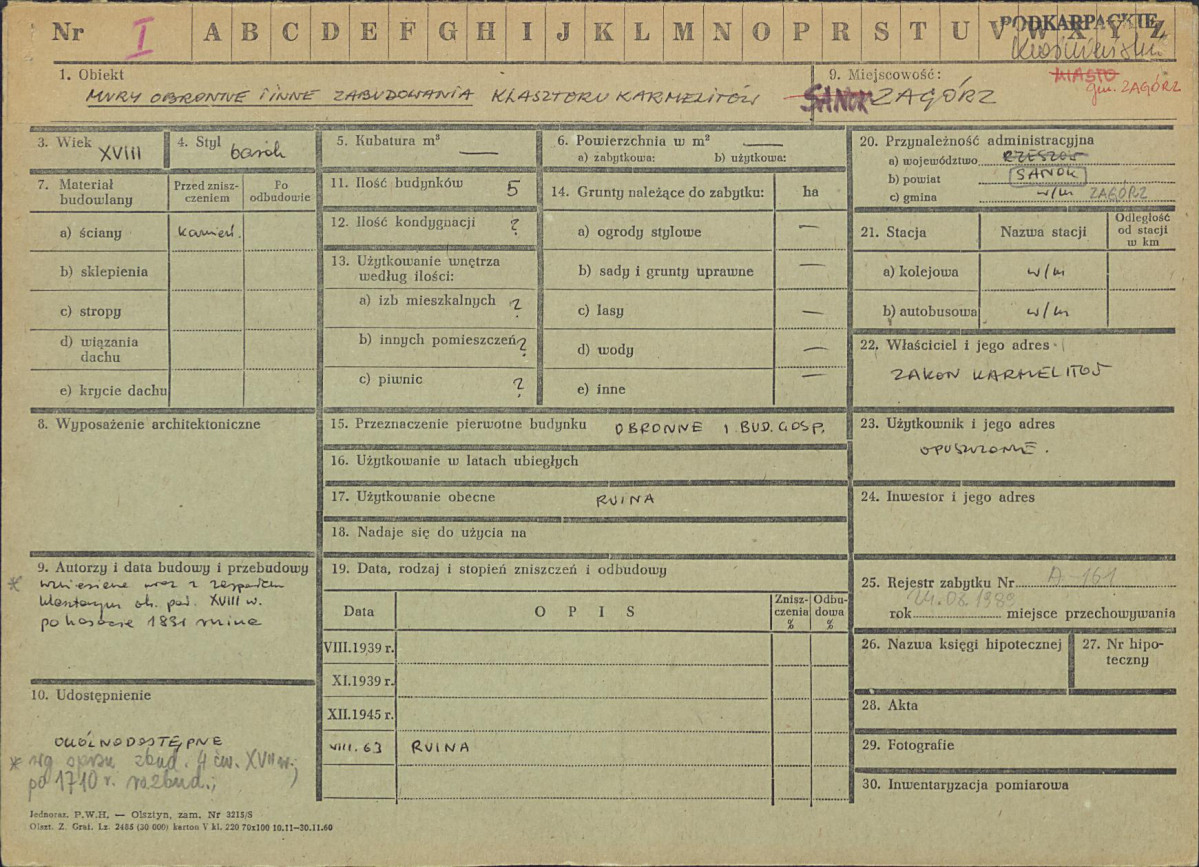 Nr I A B C D E F G H I J K L M N O P R S T U V W X Y Z
PODKARPACKIE
1. Obiekt
MURY OBRONNE I INNE ZABUDOWANIA KLASZTORU KARMELITÓW
9. Miejscowość:
SANOK ZAGÓRZ
MIASTO
gm. ZAGÓRZ
3. Wiek XVIII
4. Styl barok
5. Kubatura m³ —
6. Powierzchnia w m² —
a) zabytkowa: b) użytkowa:
7. Materiał budowlany
Przed zniszczeniem
Po odbudowie
a) ściany kamień.
b) sklepienia
c) stropy
d) wiązania dachu
e) krycie dachu
8. Wyposażenie architektoniczne
9. Autorzy i data budowy i przebudowy
* wzniesione wraz z zespołem
klasztornym ok. poł. XVIII w.
po kasacie 1831 ruina
10. Udostępnienie
OGÓLNODOSTĘPNE
* wg oprac. zbud. 4 ćw. XVII w.;
po 1710 r. rozbud.;
11. Ilość budynków 5
12. Ilość kondygnacji ?
13. Użytkowanie wnętrza
według ilości:
a) izb mieszkalnych ?
b) innych pomieszczeń ?
c) piwnic ?
14. Grunty należące do zabytku: ha
a) ogrody stylowe —
b) sady i grunty uprawne —
c) lasy —
d) wody —
e) inne —
15. Przeznaczenie pierwotne budynku OBRONNE I BUD. GOSP.
16. Użytkowanie w latach ubiegłych
17. Użytkowanie obecne RUINA
18. Nadaje się do użycia na
19. Data, rodzaj i stopień zniszczeń i odbudowy
Data
O P I S
Zniszczenia %
Odbudowa %
VIII.1939 r.
XI.1939 r.
XII.1945 r.
VIII. 63 RUINA
20. Przynależność administracyjna
a) województwo RZESZÓW
b) powiat SANOK
c) gmina w/m ZAGÓRZ
21. Stacja
Nazwa stacji
Odległość od stacji w km
a) kolejowa w/m
b) autobusowa w/m
22. Właściciel i jego adres
ZAKON KARMELITÓW
23. Użytkownik i jego adres
OPUSZCZONE.
24. Inwestor i jego adres
25. Rejestr zabytku Nr A-161
24.02.1989
rok miejsce przechowywania
26. Nazwa księgi hipotecznej
27. Nr hipoteczny
28. Akta
29. Fotografie
30. Inwentaryzacja pomiarowa
Jednoraz. P.W.H. — Olsztyn, zam. Nr 3215/S
Olszt. Z. Graf. Lz. 2485 (30 000) karton V kl. 220 70x100 10.11—30.11.60